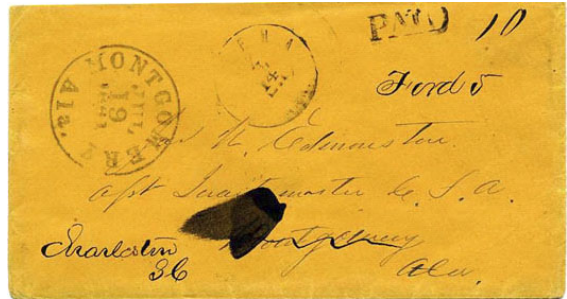 PAID 10
MONTGOMERY Ala.
JUL
19
14
Ford 5
N. Edmonston
Quartermaster C. S. A.
Montgomery
Ala.
Charleston
S C